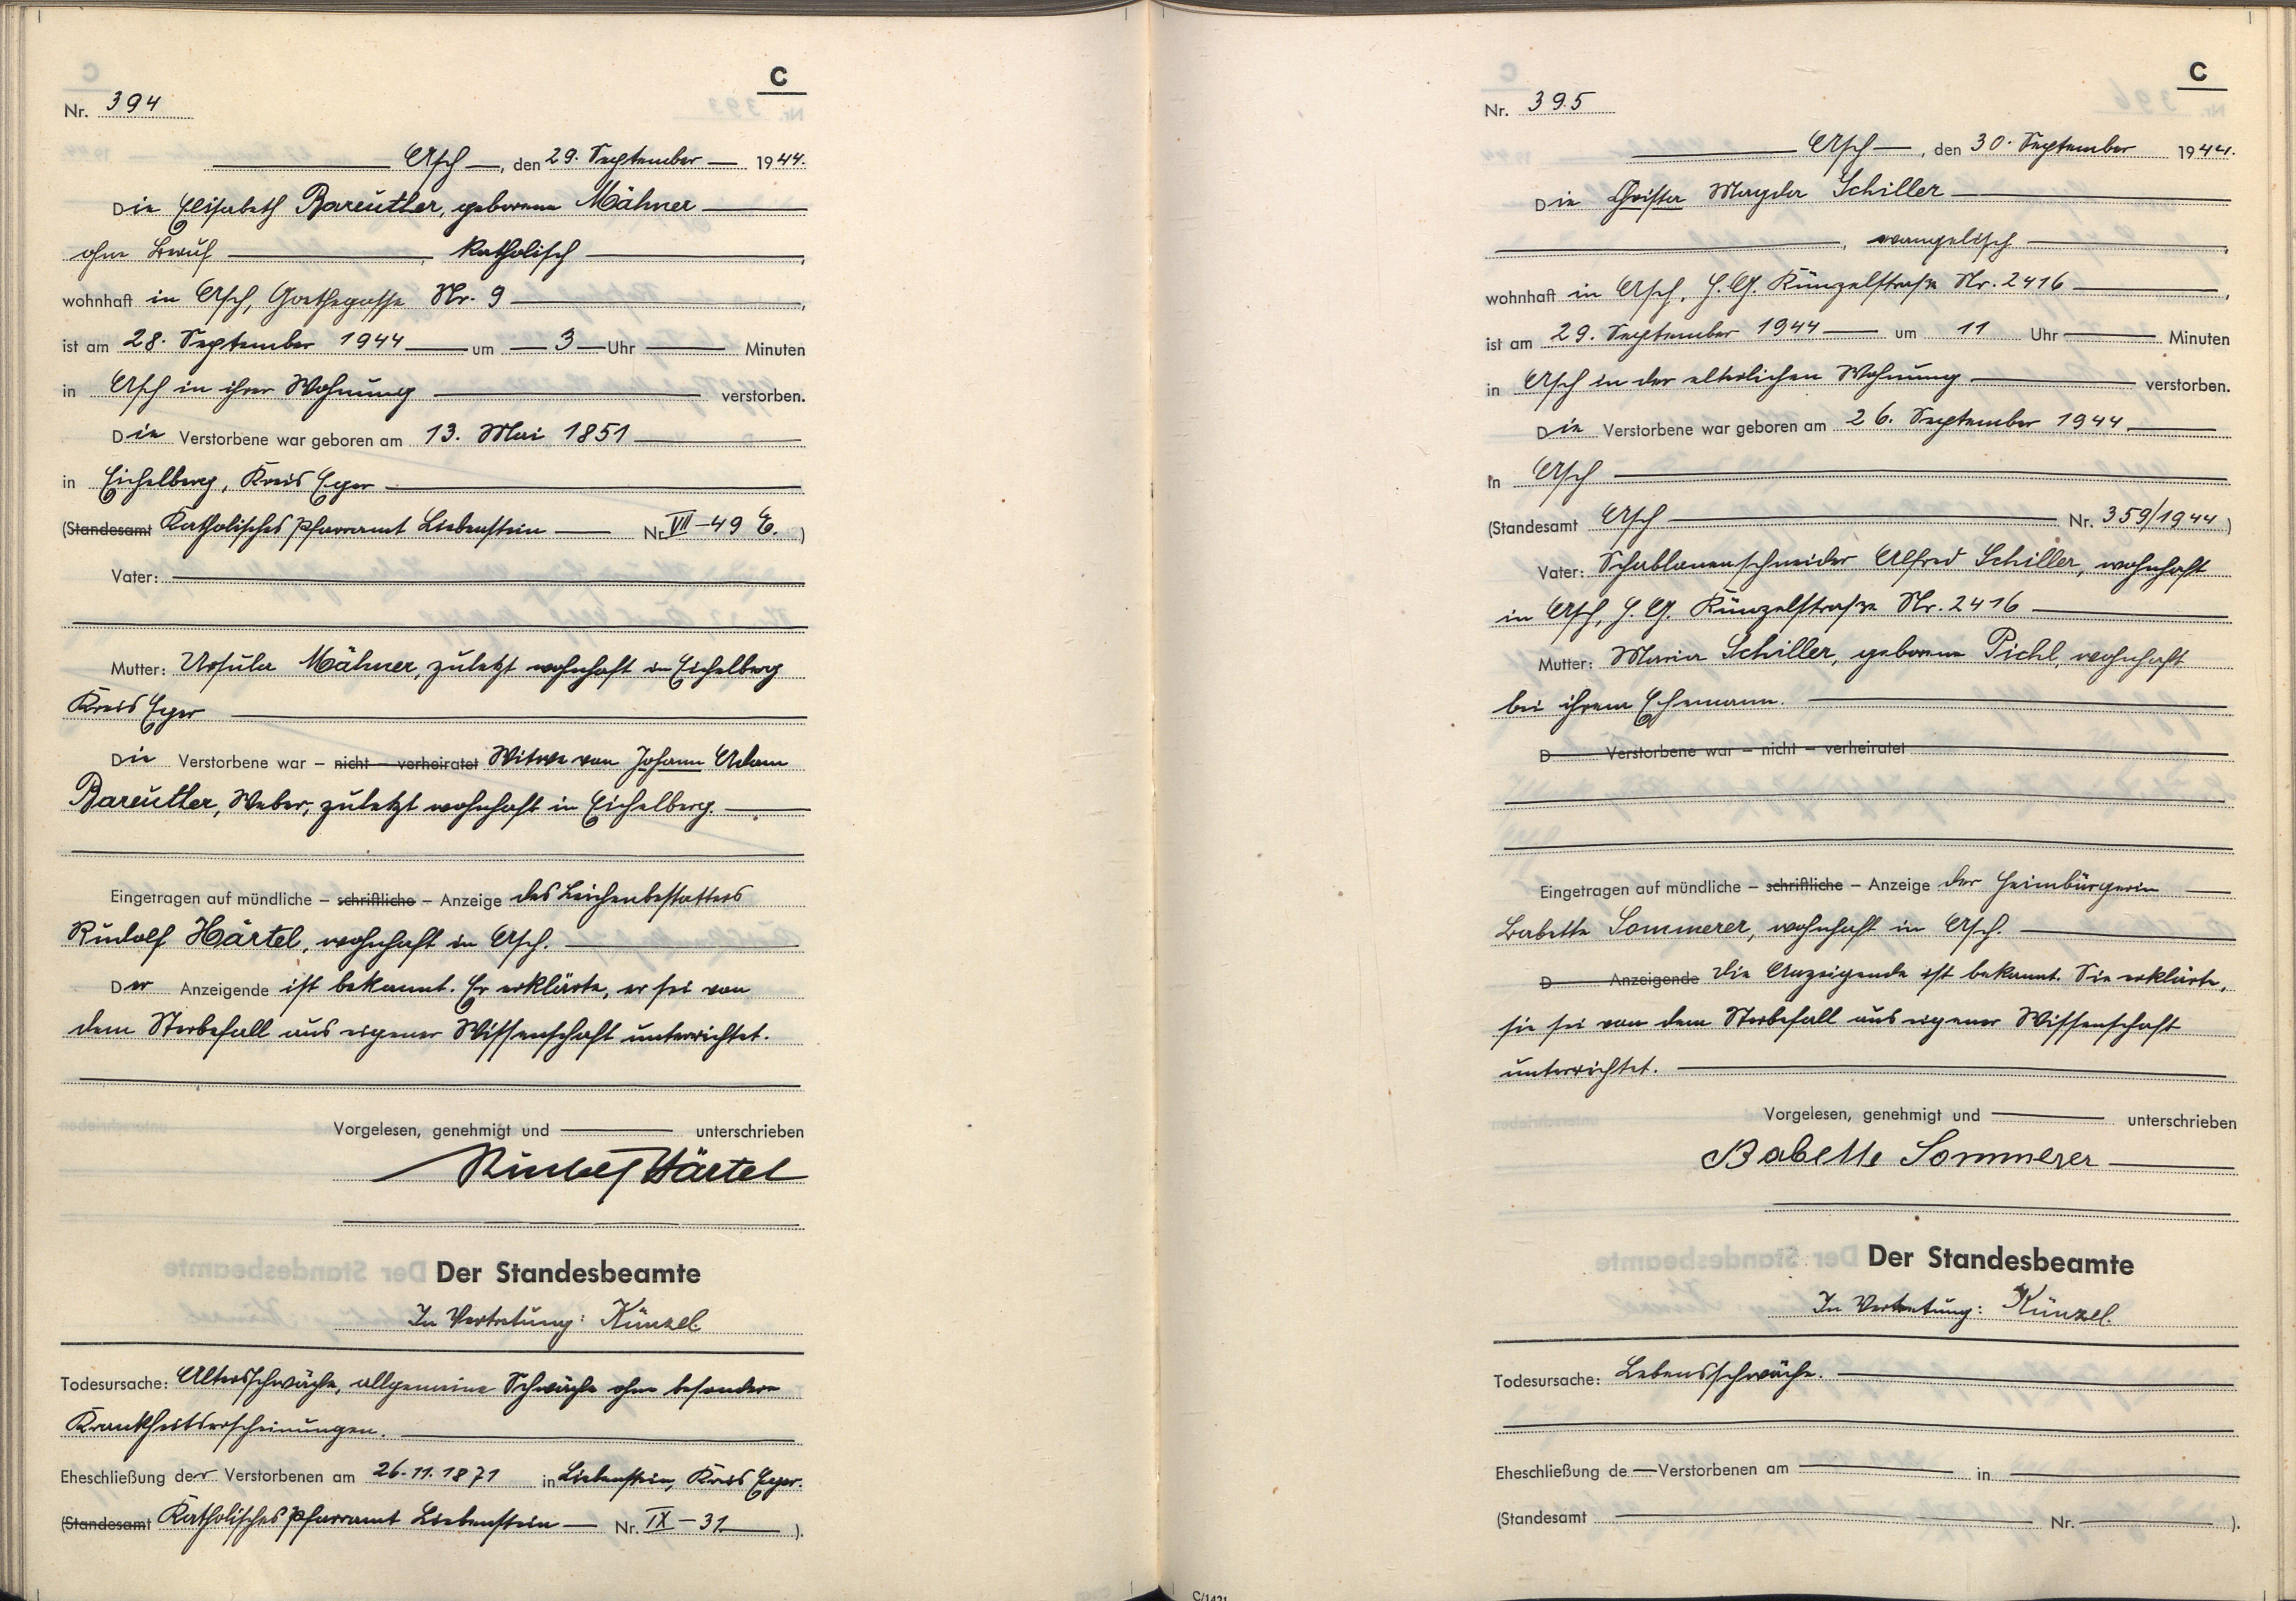 C
Nr. 394
Asch, den 29. September 1944.
Die Elisabeth Bareuther, geborene Mähner
ohne Beruf, katholisch,
wohnhaft in Asch, Goethegasse Nr. 9,
ist am 28. September 1944 um 3 Uhr Minuten
in Asch in ihrer Wohnung verstorben.
Die Verstorbene war geboren am 13. Mai 1851
in Eichelberg, Kreis Eger
(Standesamt Katholisches Pfarramt Liebenstein Nr. VII-49 E.)
Vater:
Mutter: Ursula Mähner, zuletzt wohnhaft in Eichelberg
Kreis Eger
Die Verstorbene war – nicht – verheiratet Witwe von Johann Adam
Bareuther, Weber, zuletzt wohnhaft in Eichelberg.
Eingetragen auf mündliche – schriftliche – Anzeige des Leichenbestatters
Rudolf Härtel, wohnhaft in Asch.
Der Anzeigende ist bekannt. Er erklärte, er sei von
dem Sterbefall aus eigener Wissenschaft unterrichtet.
Vorgelesen, genehmigt und unterschrieben
Rudolf Härtel
Der Standesbeamte
In Vertretung: Künzel.
Todesursache: Altersschwäche, allgemeine Schwäche ohne besondere
Krankheitserscheinungen.
Eheschließung der Verstorbenen am 26.11.1871 in Liebenstein, Kreis Eger.
(Standesamt Katholisches Pfarramt Liebenstein Nr. IX-31).
C
Nr. 395
Asch, den 30. September 1944.
Die Christa Magda Schiller
, evangelisch,
wohnhaft in Asch, H. G. Künzelstraße Nr. 2416,
ist am 29. September 1944 um 11 Uhr Minuten
in Asch in der elterlichen Wohnung verstorben.
Die Verstorbene war geboren am 26. September 1944
in Asch
(Standesamt Asch Nr. 359/1944)
Vater: Schablonenschneider Alfred Schiller, wohnhaft
in Asch, H. G. Künzelstraße Nr. 2416
Mutter: Maria Schiller, geborene Pichl, wohnhaft
bei ihrem Ehemann.
D Verstorbene war – nicht – verheiratet
Eingetragen auf mündliche – schriftliche – Anzeige der Heimbürgerin
Babette Sommerer, wohnhaft in Asch.
D Anzeigende Die Anzeigende ist bekannt. Sie erklärte,
sie sei von dem Sterbefall aus eigener Wissenschaft
unterrichtet.
Vorgelesen, genehmigt und unterschrieben
Babette Sommerer
Der Standesbeamte
In Vertretung: Künzel.
Todesursache: Lebensschwäche.
Eheschließung de Verstorbenen am in
(Standesamt Nr. ).